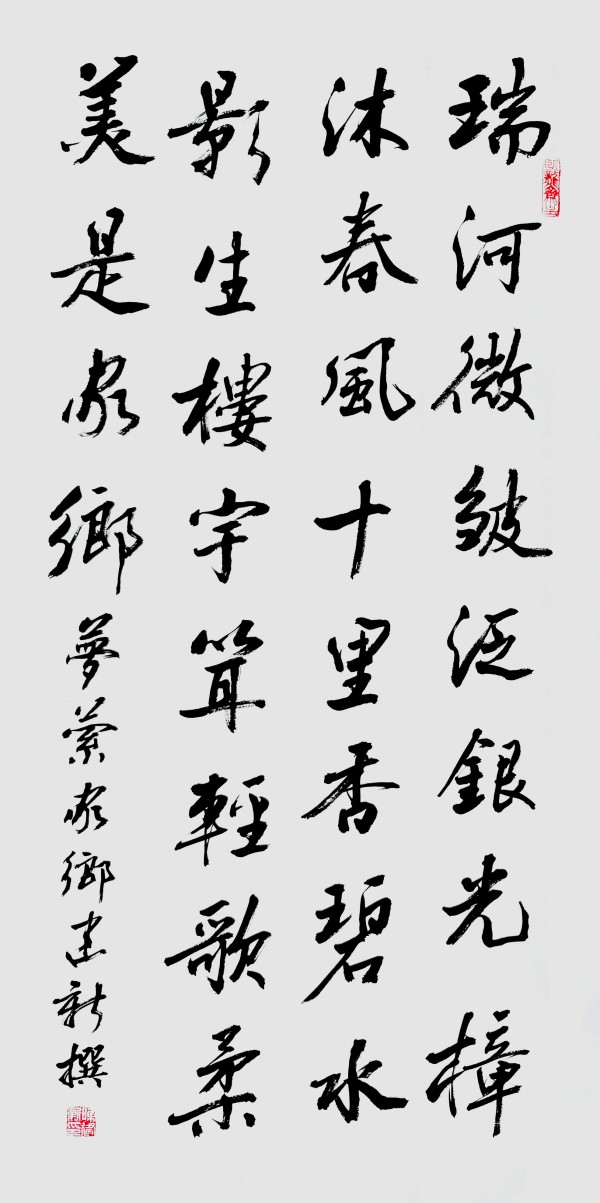 瑞河微皺泛銀光樟
沐春風十里香碧水
影生樓宇耸輕歌柔
美是家鄉
夢萦家鄉建新撰